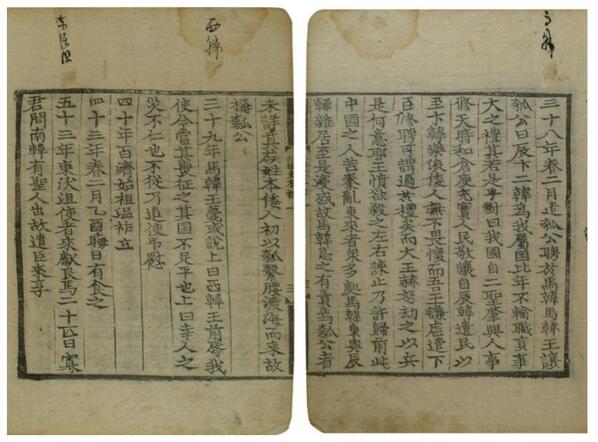 三十八年春二月遣瓠公聘於馬韓馬韓王讓
瓠公曰辰卞二韓爲我屬國比年不輸職貢事
大之禮其若是乎對曰我國自二聖肇興人事
修天時和倉庾充實人民敬讓自辰韓遺民以
至卞韓樂浪倭人無不畏懷而吾王謙虛遣下
臣修聘可謂過其禮矣而大王赫怒劫之以兵
是何意耶王憤欲殺之左右諫止乃許歸前此
中國之人苦秦亂東來者衆多處馬韓東與辰
韓雜居至是寖盛故馬韓忌之有責焉瓠公者
西韓
東沃沮
未詳其族姓本倭人初以瓠繫腰渡海而來故
稱瓠公
三十九年馬韓王薨或說上曰西韓王前辱我
使今當其喪征之其國不足平也上曰幸人之
災不仁也不從乃遣使弔慰
四十年百濟始祖溫祚立
四十三年春二月乙酉晦日有食之
五十三年東沃沮使者來獻良馬二十匹曰寡
君聞南韓有聖人出故遣臣來享